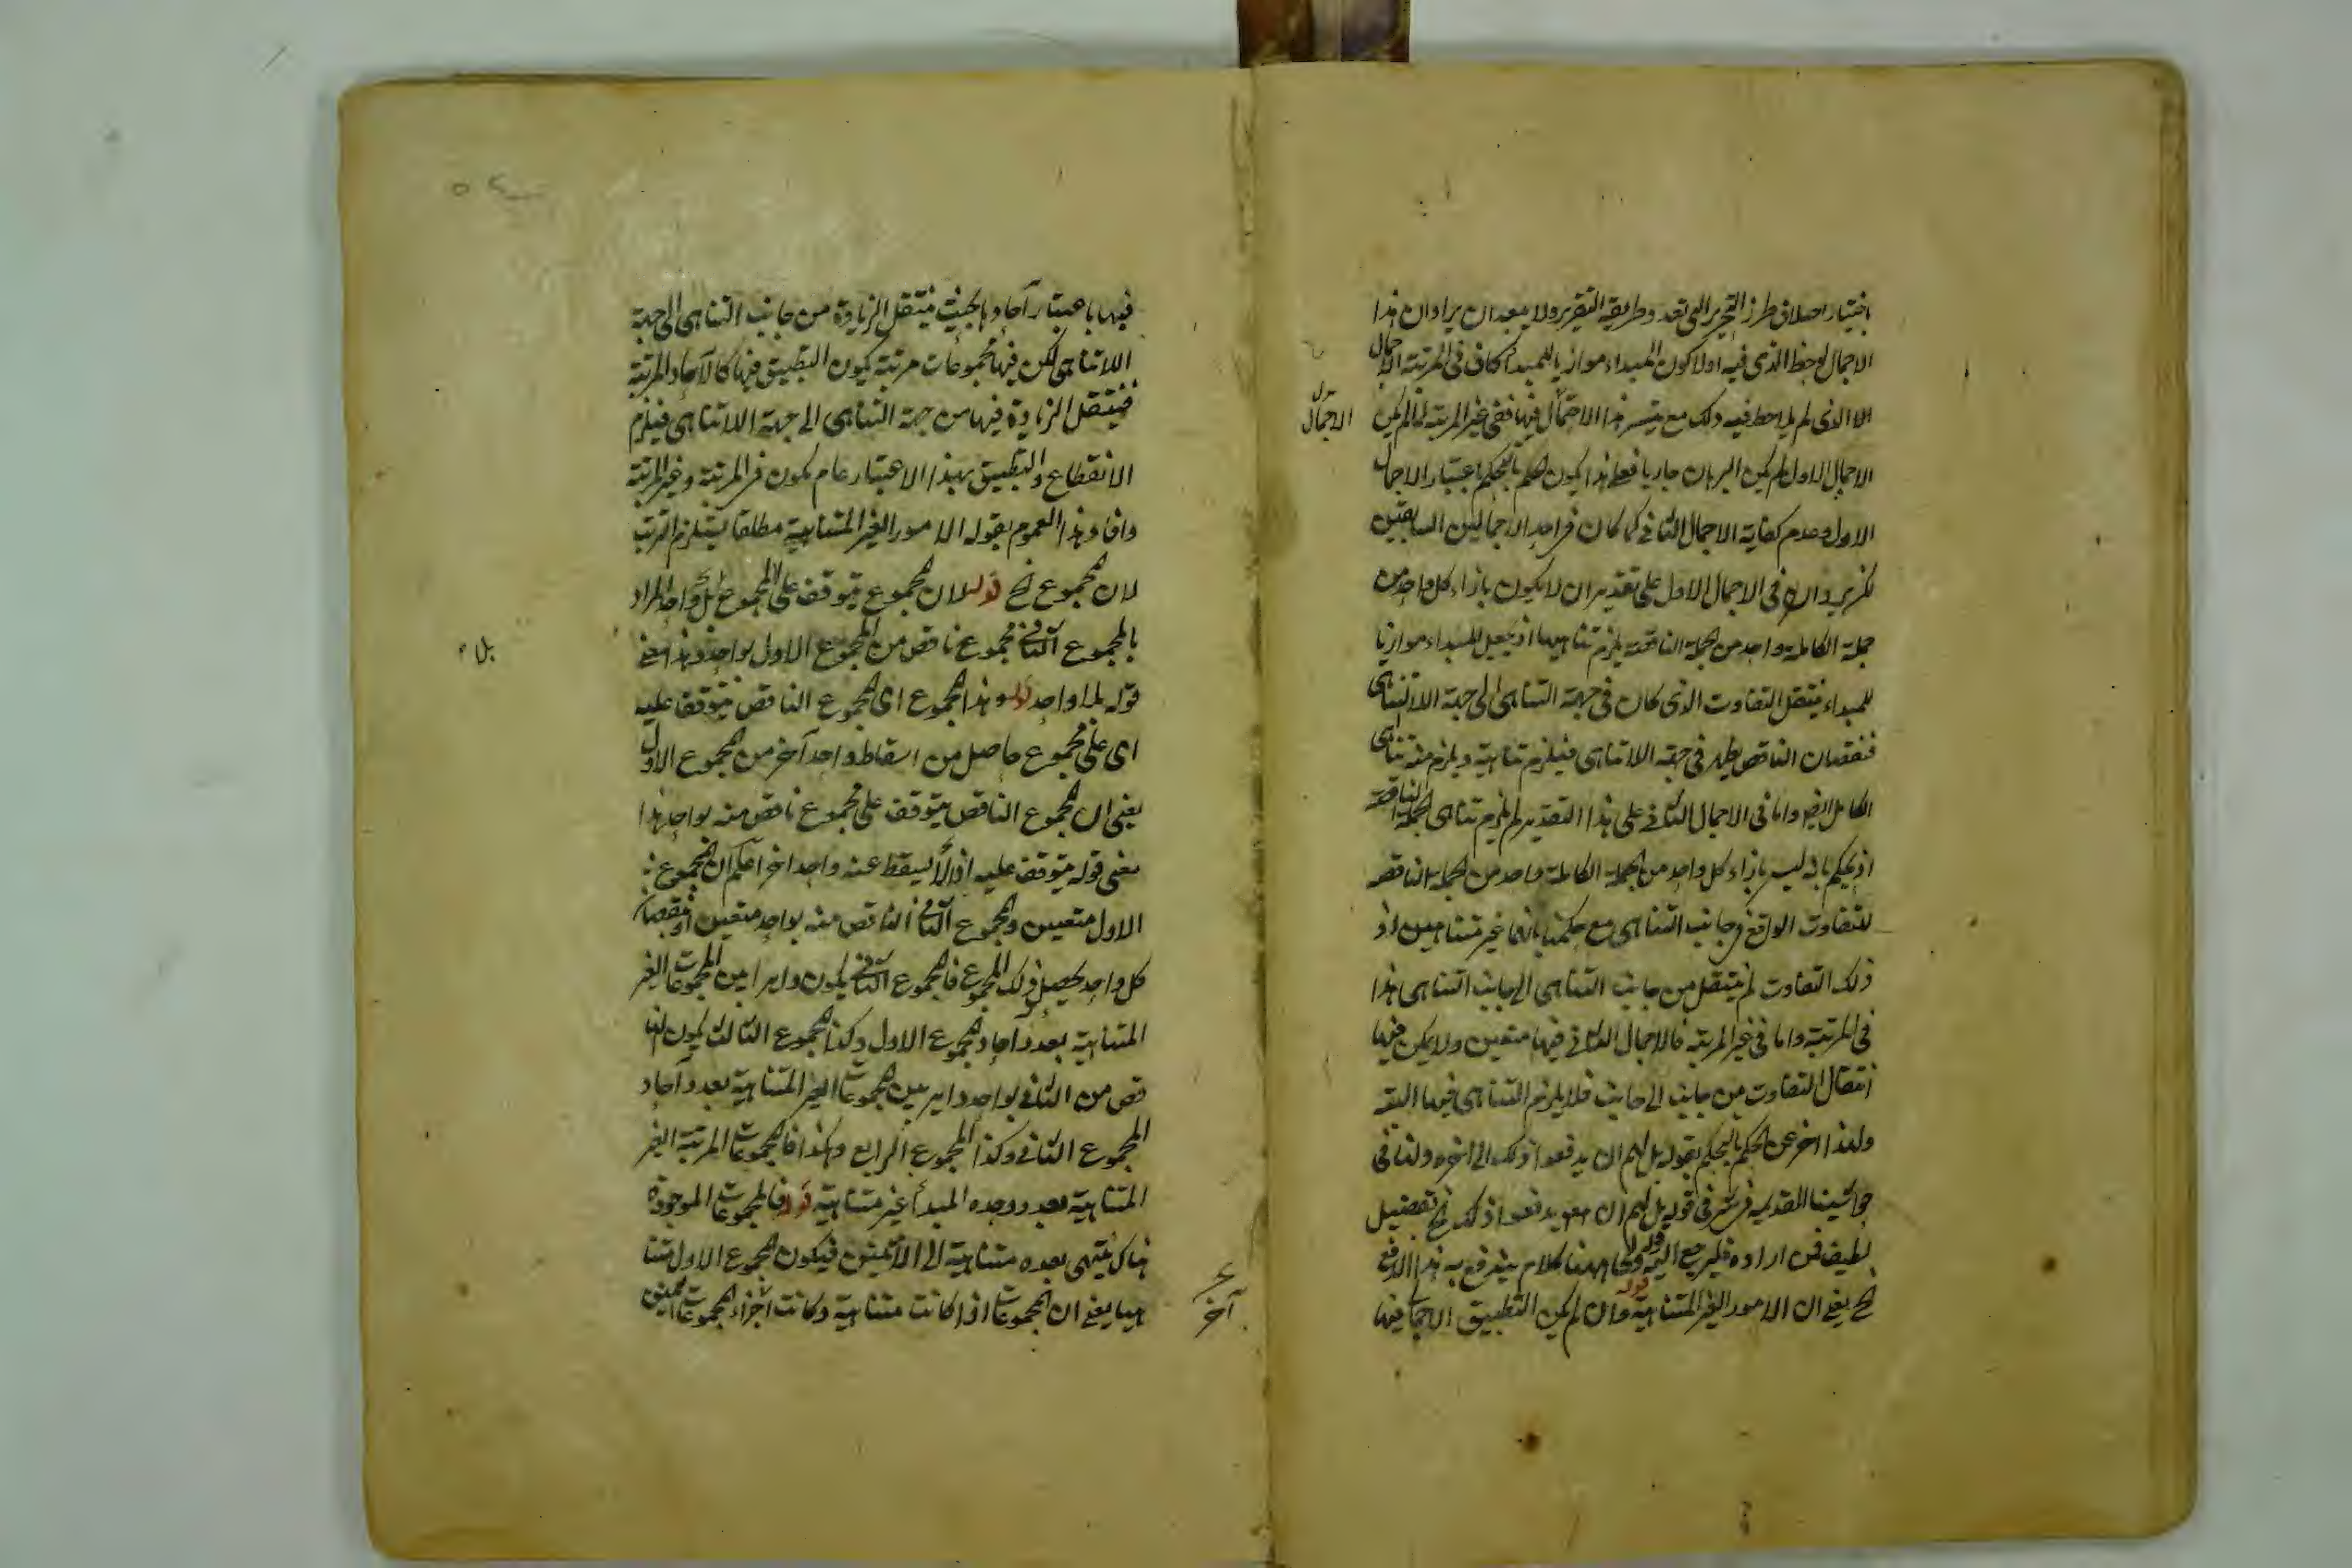 باختيار اختلاف طرز التحرير الى تعدد طريقة التقرير ولا يبعد ان يراد ان هذا
الاجمال لوحظ الذى فيه اولا كون المبداء موازيا للمبداء كاف فى المرتبة الاجمال
الا الذى لم يلاحظ فيه ذلك مع تيسر هذا الاحتمال فيها ففى غير المرتبة لما لم يكن
بدل
الاجمال
الاجمال الاول لم يكن البرهان جاريا فعلى هذا يكون الحكم بالتحكم باعتبار الاجمال
الاول وعدم كفاية الاجمال الثانى كما كان فى احد الاجمالين السابقين
فى الاجمال الاول على تقدير ان لا يكون بازاء كل واحد من
جملة الكاملة واحد من الجملة الناقصة يلزم تناهيها اذ بجعل المبداء موازيا
للمبداء ينتقل التفاوت الذى كان فى جهة التناهى الى جهة اللاتناهى
فنقصان الناقص يظهر فى جهة اللاتناهى فيلزم تناهية ويلزم منه تناهى
الكامل ايضا واما فى الاجمال الثانى على هذا التقدير لم يلزم تناهى الجملة الناقصة
اذ يحكم بانه ليس بازاء كل واحد من الجملة الكاملة واحد من الجملة الناقصة
للتفاوت الواقع فى جانب التناهى مع حكمنا بانهما غير متناهيين اذ
ذلك التفاوت لم ينتقل من جانب التناهى الى جانب التناهى هذا
فى المرتبة واما فى غير المرتبة فالاجمال الثانى فيها متعين ولا يمكن فيها
انتقال التفاوت من جانب الى جانب فلا يلزم التناهى فيها البتة
ولهذا اخر عن الحكم بالتحكم بقوله بل لهم ان يدفعوا ذلك الى اخره ولنا فى
حواشينا القديمة فى قوله بل لهم ان يدفعوا ذلك الخ تفصيل
لطيف فمن اراده فليرجع اليه قوله ولى ههنا كلام يندفع به هذا الدفع
الخ يعنى ان الامور الغير المتناهية وان لم يكن التطبيق الاجمالى فيها
فيها باعتبار آحادها بحيث ينتقل الزيادة من جانب التناهى الى جهة
اللاتناهى لكن فيها مجموعات مرتبة يكون التطبيق فيها كالآحاد المرتبة
فينتقل الزيادة فيها من جهة التناهى الى جهة اللاتناهى فيلزم
الانقطاع والتطبيق بهذا الاعتبار عام يكون فى المرتبة وغير المرتبة
وافاد هذا العموم بقوله الامور الغير المتناهية مطلقا يستلزم الترتب
لان المجموع الخ قوله لان المجموع يتوقف على المجموع واحد المراد
بالمجموع الثانى مجموع ناقص من المجموع الاول بواحد وهذا معنى
بلا
قوله بلا واحد قوله وهذا المجموع اى المجموع الناقص يتوقف عليه
اى على مجموع حاصل من اسقاط واحد آخر من المجموع الاول
يعنى ان المجموع الناقص يتوقف على مجموع ناقص منه بواحد هذا
معنى قوله يتوقف عليه اذا اسقط عنه واحد اخر اعلم ان المجموع
الاول متعين والمجموع الثانى الناقص منه بواحد متعين اذ بنقصان
كل واحد يحصل ذلك المجموع فالمجموع الثانى يكون دايرا بين المجموعات الغير
المتناهية بعدد آحاد المجموع الاول وكذا المجموع الثالث يكون النا
قص من الثانى بواحد داير بين المجموعات الغير المتناهية بعدد آحاد
المجموع الثانى وكذا المجموع الرابع وهكذا فالمجموعات المرتبة الغير
المتناهية بعدد وحده المبدأ غير متناهية قوله فالمجموعات الموجودة
هناك ينتهى بعده متناهية الى الاثنين فيكون المجموع الاول متنا
هيا يعنى ان المجموعات اذا كانت متناهية وكانت اجزاء المجموعات
آخر